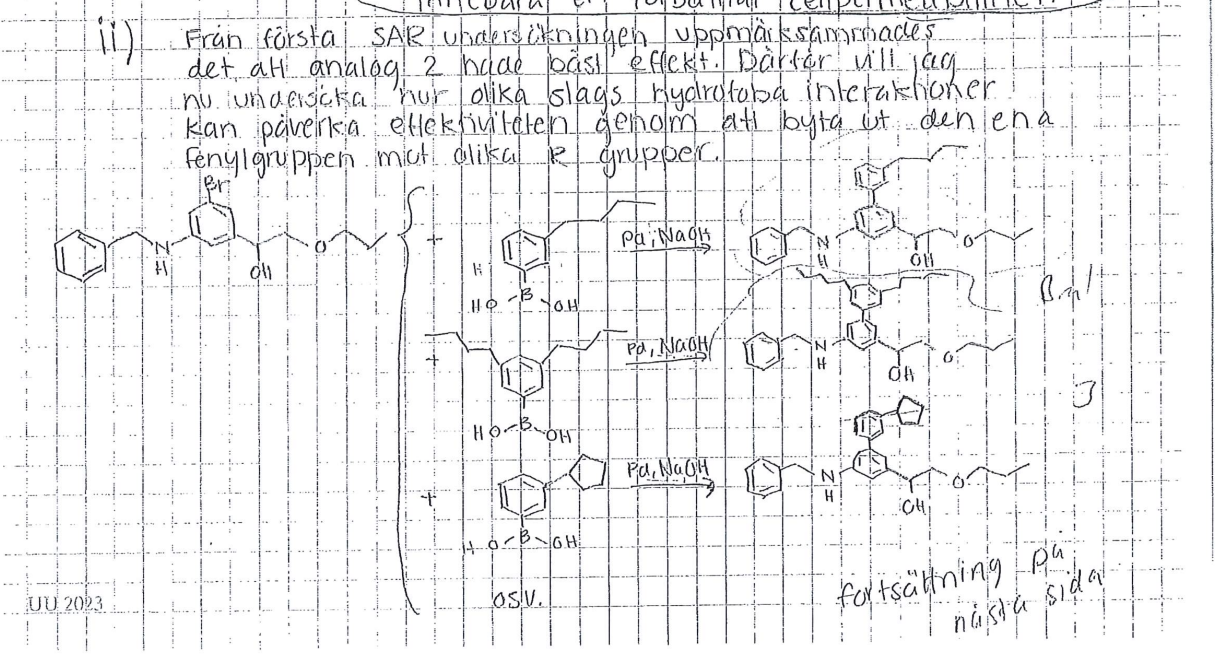 ii) Från första SAR undersökningen uppmärksammades
det att analog 2 hade bäst effekt. Därför vill jag
nu undersöka hur olika slags hydrofoba interaktioner
kan påverka effektiviteten genom att byta ut den ena
fenylgruppen mot olika R grupper.
Br
N
H
OH
O
+
H
HO
B
OH
Pd, NaOH
N
H
OH
O
Bra!
+
HO
B
OH
Pd, NaOH
N
H
OH
O
J
+
HO
B
OH
Pd, NaOH
N
H
OH
O
osv.
fortsättning på
nästa sida
UU 2023